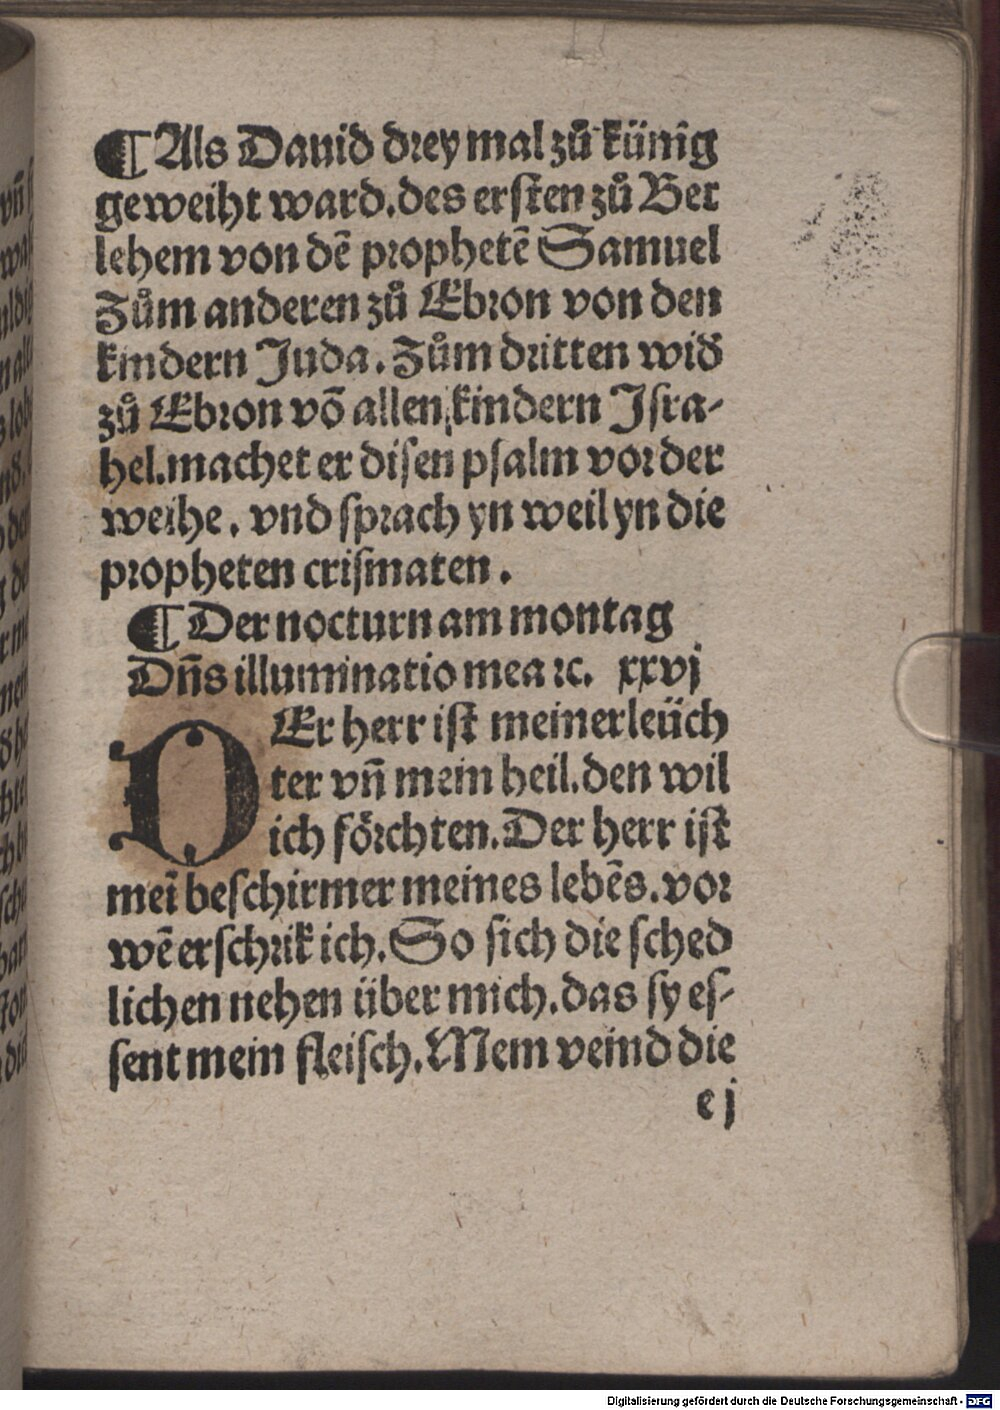 ¶ Als Dauid drey mal zů künig
geweiht ward. des ersten zů Bet
lehem von dē prophetē Samuel
Zům anderen zů Ebron von den
kindern Juda. Zům dritten wid̉
zů Ebron vō allen kindern Isra-
hel. machet er disen psalm vor der
weihe. vnd sprach yn weil yn die
propheten crismaten.
¶ Der nocturn am montag
Dn̄s illuminatio mea ꝛc. xxvj
DEr herr ist mein erleüch
ter vn̄ mein heil. den wil
ich förchten. Der herr ist
meī beschirmer meines lebēs. vor
wē erschrik ich. So sich die sched
lichen nehen über mich. das sy es-
sent mein fleisch. Mein veind die
e j
Digitalisierung gefördert durch die Deutsche Forschungsgemeinschaft - DFG